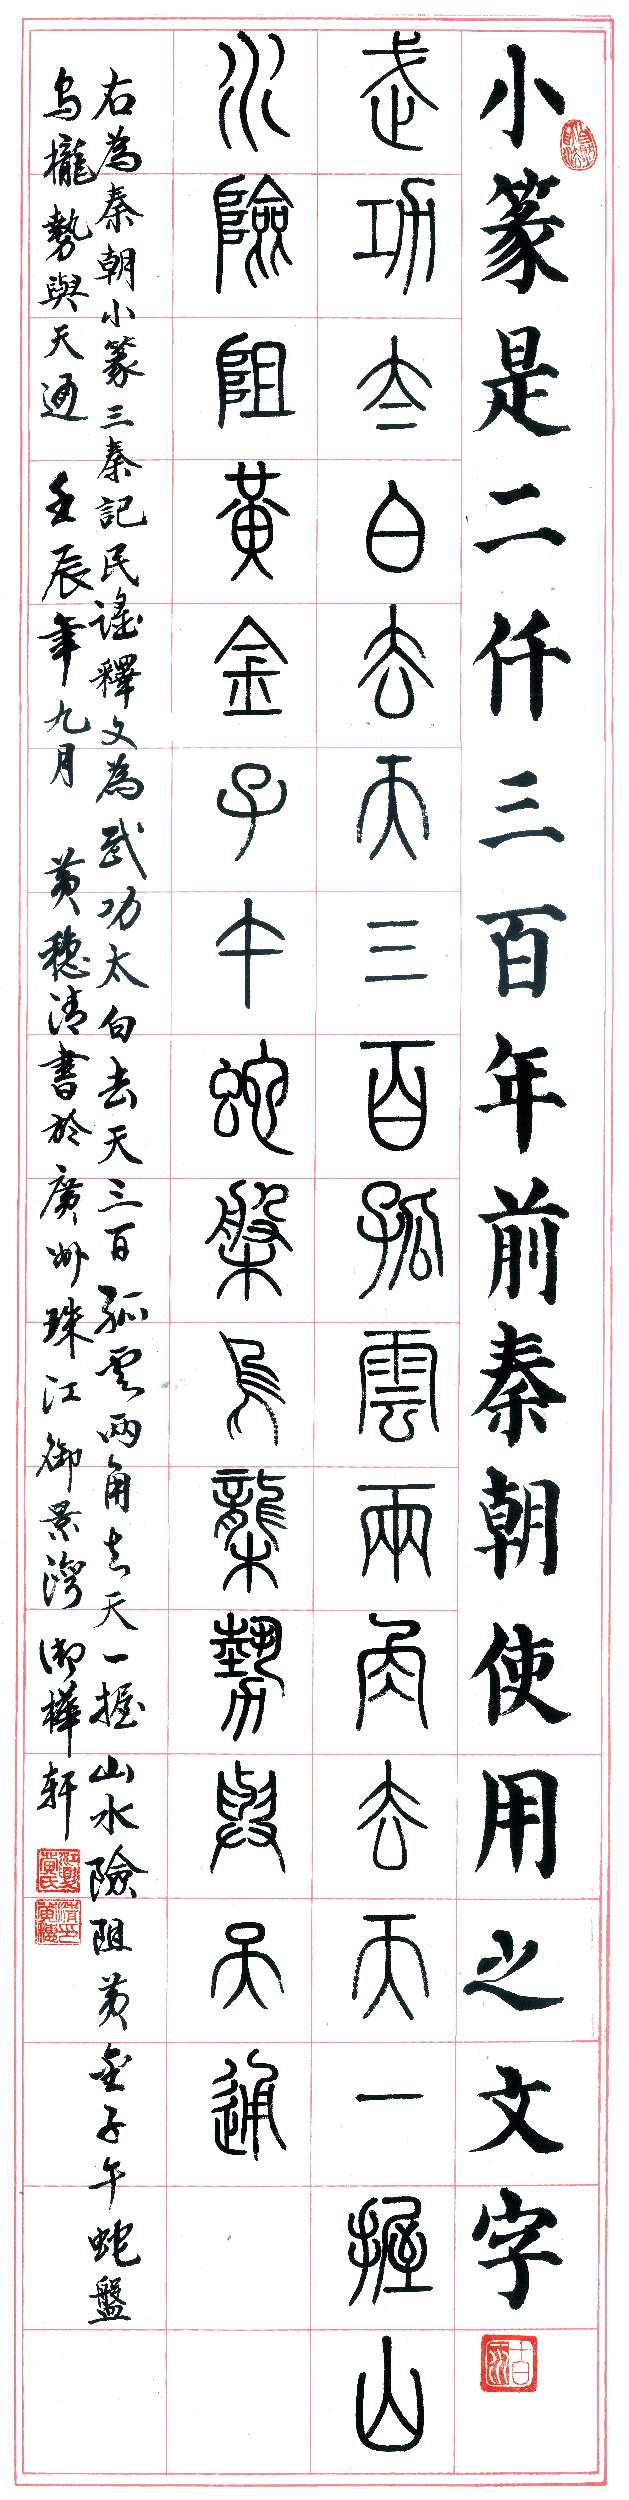 小篆是二仟三百年前秦朝使用之文字
武功太白去天三百孤雲兩角去天一握山
水險阻黃金子午蛇槃烏櫳勢與天通
右為秦朝小篆三秦記民謠釋文為武功太白去天三百孤雲兩角去天一握山水險阻黃金子午蛇盤
烏櫳勢與天通 壬辰年九月 黃穗清書於廣州珠江御景灣御樺軒